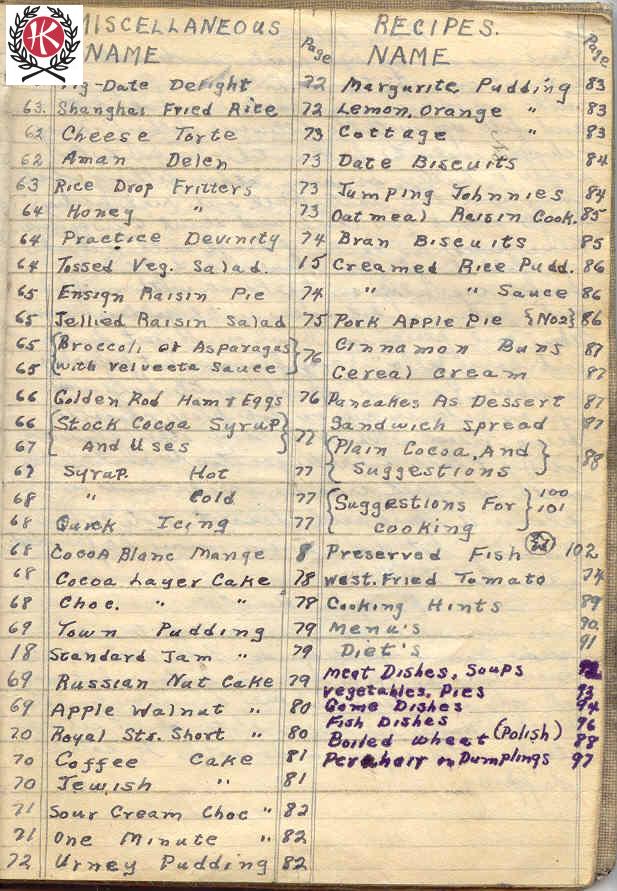 HK
MISCELLANEOUS RECIPES.
NAME Page NAME Page
Fig-Date Delight 72 Margurite Pudding 83
63. Shanghai Fried Rice 72 Lemon, Orange " 83
62 Cheese Torte 73 Cottage " 83
62 Aman Delen 73 Date Biscuits 84
63 Rice Drop Fritters 73 Jumping Johnnies 84
64 Honey " 73 Oatmeal Raisin Cook. 85
64 Practice Devinity 74 Bran Biscuits 85
64 Tossed Veg. Salad. 15 Creamed Rice Pudd. 86
65 Ensign Raisin Pie 74 " " Sauce 86
65 Jellied Raisin Salad 75 Pork Apple Pie {No2} 86
65 {Broccoli or Asparagas} 76 Cinnamon Buns 87
65 {with Velveeta Sauce} Cereal Cream 87
66 Golden Rod Ham & Eggs 76 Pancakes As Dessert 87
66 {Stock Cocoa Syrup} 77 Sandwich Spread 87
67 {And Uses} {Plain Cocoa, And} 88
67 Syrup. Hot 77 {Suggestions}
68 " Cold 77 {Suggestions For} 100
68 Quick Icing 77 {cooking} 101
68 Cocoa Blanc Mange 8 Preserved Fish 102
68 Cocoa Layer Cake 78 West. Fried Tomato 74
68 Choc. " " 78 Cooking Hints 89
69 Town Pudding 79 Menu's 90
18 Standard Jam " 79 Diet's 91
69 Russian Nut Cake 79 Meat Dishes, Soups
Vegetables, Pies 93
69 Apple Walnut " 80 Game Dishes 94
Fish Dishes 96
70 Royal Str. Short " 80 Boiled Wheat (Polish) 88
70 Coffee Cake 81 Dumplings 97
70 Jewish " 81
71 Sour Cream Choc " 82
71 One Minute " 82
72 Urney Pudding 82